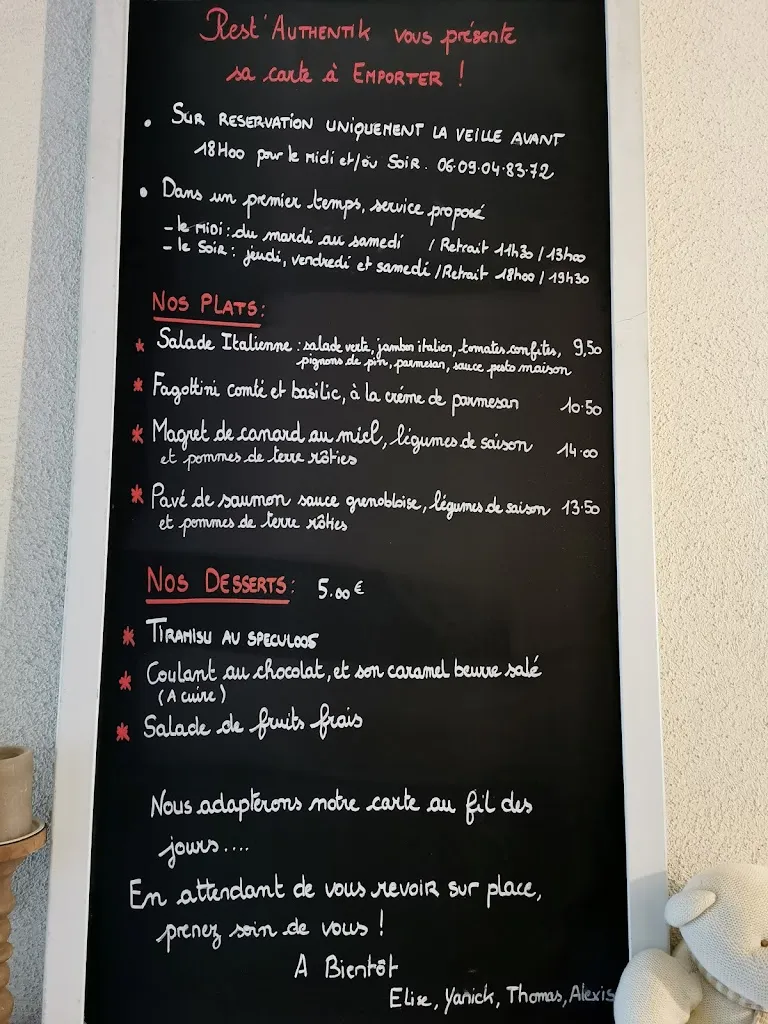 Rest'AUTHENTIK vous présente
sa carte à EMPORTER !
• SUR RESERVATION UNIQUEMENT LA VEILLE AVANT
18H00 pour le MIDI et/ou SOIR. 06.09.04.83.72
• Dans un premier temps, service proposé
- le MIDI : du mardi au samedi / Retrait 11h30 / 13h00
- le SOIR : jeudi, vendredi et samedi / Retrait 18h00 / 19H30
NOS PLATS :
* Salade Italienne : salade verte, jambon italien, tomates confites, 9,50
pignons de pin, parmesan, sauce pesto maison
* Fagottini comté et basilic, à la crème de parmesan 10.50
* Magret de canard au miel, légumes de saison 14.00
et pommes de terre rôties
* Pavé de saumon sauce grenobloise, légumes de saison 13.50
et pommes de terre rôties
NOS DESSERTS : 5.00 €
* TIRAMISU AU SPECULOOS
* Coulant au chocolat, et son caramel beurre salé
(A cuire)
* Salade de fruits frais
Nous adapterons notre carte au fil des
jours....
En attendant de vous revoir sur place,
prenez soin de vous !
A Bientôt
Elise, Yanick, Thomas, Alexis